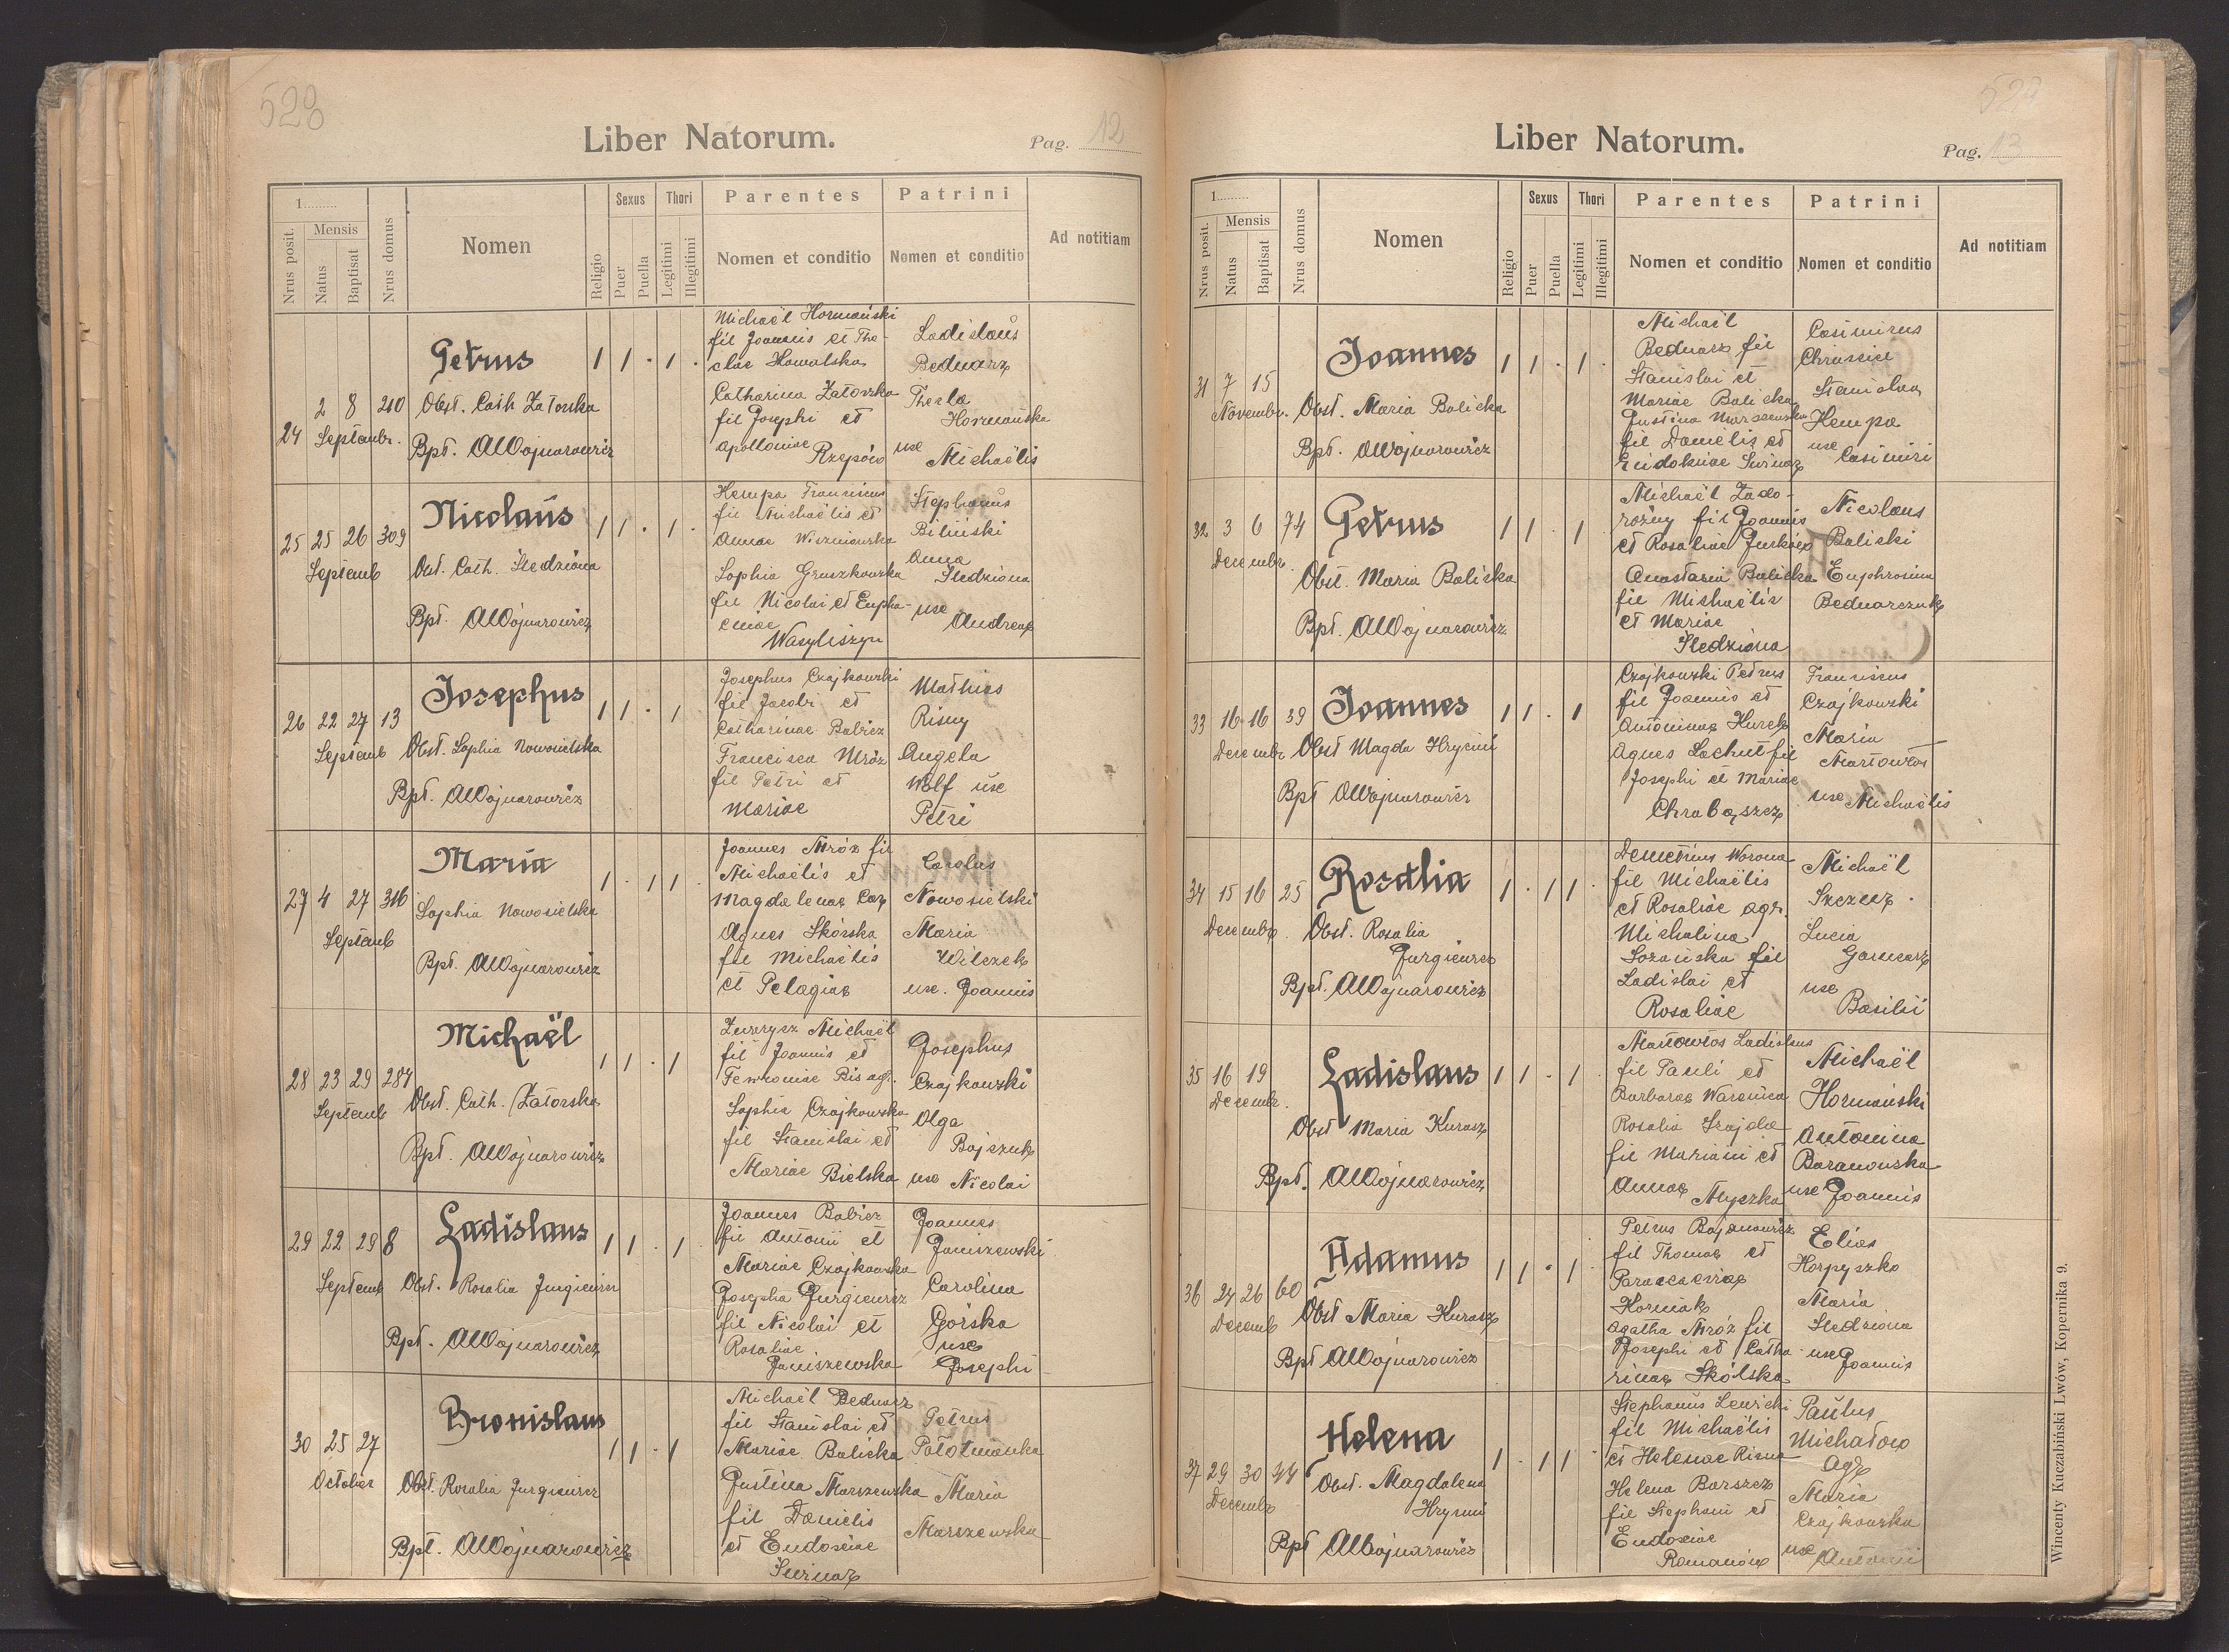 528
Liber Natorum.
Pag. 12
1
Nrus posit.
Mensis
Natus
Baptisat
Nrus domus
Nomen
Religio
Sexus
Puer
Puella
Thori
Legitimi
Illegitimi
Parentes
Nomen et conditio
Patrini
Nomen et conditio
Ad notitiam
24 2 8 210
Septembr.
Petrus
Obst. Cath Zatorska
Bpt. AWojnarowicz
1 1 . 1 .
Michaël Hormański
fil Joannis et The-
clae Kowalska
Catharina Zatorska
fil Josephi et
Apolloniae Rzepów
Ladislaus
Bednarz
Thecla
Hormańska
use Michaëlis
25 25 26 309
Septemb
Nicolaus
Obst. Cath. Śledziona
Bpt. AWojnarowicz
1 1 . 1 .
Kempa Franciscus
fil Michaëlis et
Annae Wiszniowska
Sophia Gruszkowska
fil Nicolai et Eupha-
emiae
Wasyliszyn
Stephanus
Biliński
Anna
Śledziona
use
Andreas
26 22 27 13
Septemb
Josephus
Obst. Sophia Nowosielska
Bpt. AWojnarowicz
1 1 . 1
Josephus Czajkowski
fil Jacobi et
Catharinae Babicz
Francisca Mróz
fil Petri et
Mariae
Mathias
Risny
Angela
Wolf use
Petri
27 4 27 316
Septemb
Maria
Sophia Nowosielska
Bpt. AWojnarowicz
1 . 1 1 .
Joannes Mróz fil
Michaëlis et
Magdalenae Cap
Agnes Skórska
fil Michaëlis
et Pelagiae
Carolus
Nowosielski
Maria
Wilczek
use. Joannis
28 23 29 284
Septemb
Michaël
Obst. Cath. Zatorska
Bpt. AWojnarowicz
1 1 . 1
Zwarycz Michaël
fil Joannis et
Fewroniae Bis agr.
Sophia Czajkowska
fil Stanislai et
Mariae Bielska
Josephus
Czajkowski
Olga
Bojczuk
use Nicolai
29 22 29 8
Septemb
Ladislaus
Obst. Rosalia Jurgiewicz
Bpt. AWojnarowicz
1 1 . 1 .
Joannes Babicz
fil Antonii et
Mariae Czajkowska
Josepha Jurgiewicz
fil Nicolai et
Rosaliae
Janiszewska
Joannes
Janiszewski
Carolina
Górska
use
Josephi
30 25 27
October
Bronislaus
Obst. Rosalia Jurgiewicz
Bpt. AWojnarowicz
1 1 . 1
Michaël Bednarz
fil Stanislai et
Mariae Balicka
Justina Marszewska
fil Danielis
et Eudoxiae
Swinaz
Petrus
Maria
Marszewska
529
Liber Natorum.
Pag. 13
1
Nrus posit.
Mensis
Natus
Baptisat
Nrus domus
Nomen
Religio
Sexus
Puer
Puella
Thori
Legitimi
Illegitimi
Parentes
Nomen et conditio
Patrini
Nomen et conditio
Ad notitiam
31 7 15
Novembr.
Joannes
Obst. Maria Balicka
Bpt. AWojnarowicz
1 1 . 1 .
Michaël
Bednarz fil
Stanislai et
Mariae Balicka
Justina Marszewska
fil Danielis et
Eudokiae Swinaz
Casimirus
Stanislava
Kempa
use
Casimiri
32 3 6 74
Decembr.
Petrus
Obst. Maria Balicka
Bpt. AWojnarowicz
1 1 . 1
Michaël Zado-
rożny fil Joannis
et Rosaliae Jurków
Anastasia Balicka
fil Michaëlis
et Mariae
Śledziona
Nicolaus
Balicki
Euphrosina
Bednarczuk
33 16 16 39
Decembr
Joannes
Obst Magda Hryciui
Bpt AWojnarowicz
1 1 . 1
Czajkowski Petrus
fil Joannis et
Antoninae Kurek
Agnes Lachut fil
Josephi et Mariae
Chrabąszcz
Franciscus
Czajkowski
Maria
Martowłos
use Michaëlis
34 15 16 25
Decembr.
Rosalia
Obst. Rosalia
Jurgiewicz
Bpt. AWojnarowicz
1 . 1 1 .
Demetrius Worona
fil Michaëlis
et Rosaliae agr.
Michalina
Lozańska fil
Ladislai et
Rosaliae
Michaël
Szczerz.
Lucia
Garncarz
use
Basilii
35 16 19
Decembr.
Ladislaus
Obst Maria Kurasz
Bpt. AWojnarowicz
1 1 . 1 .
Martowłos Ladislaus
fil Pauli et
Barbarae Waronica
Rosalia Szajda
fil Mariani et
Annae Myszka
Michaël
Hormański
Antonina
Baranowska
use Joannis
36 24 26 60
Decemb
Adamus
Obst Maria Kurasz
Bpt AWojnarowicz
1 1 . 1
Petrus Bojanowicz
fil Thomae et
Parascaeviae
Korniak
Agatha Mróz fil
Josephi et Catha-
rinae Skólska
Elias
Korpyszko
Maria
Śledziona
use Joannis
37 29 30 44
Decembr
Helena
Obst. Magdalena
Hryciui
Bpt AWojnarowicz
1 . 1 1 .
Stephanus Lewicki
fil Michaëlis
et Helenae Risna
Helena Barszcz
fil Stephani et
Eudoxiae
Romanów
Paulus
Michałow
agr
Maria
Czajkowska
use Antonii
Wincenty Kuczabiński Lwów, Kopernika 9.